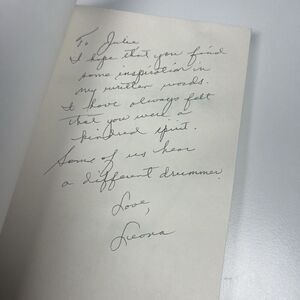 To Julie
I hope that you find
some inspiration in
my written words.
I have always felt
that you were a
kindred spirit.
Some of us hear
a different drummer.
Love,
Leona